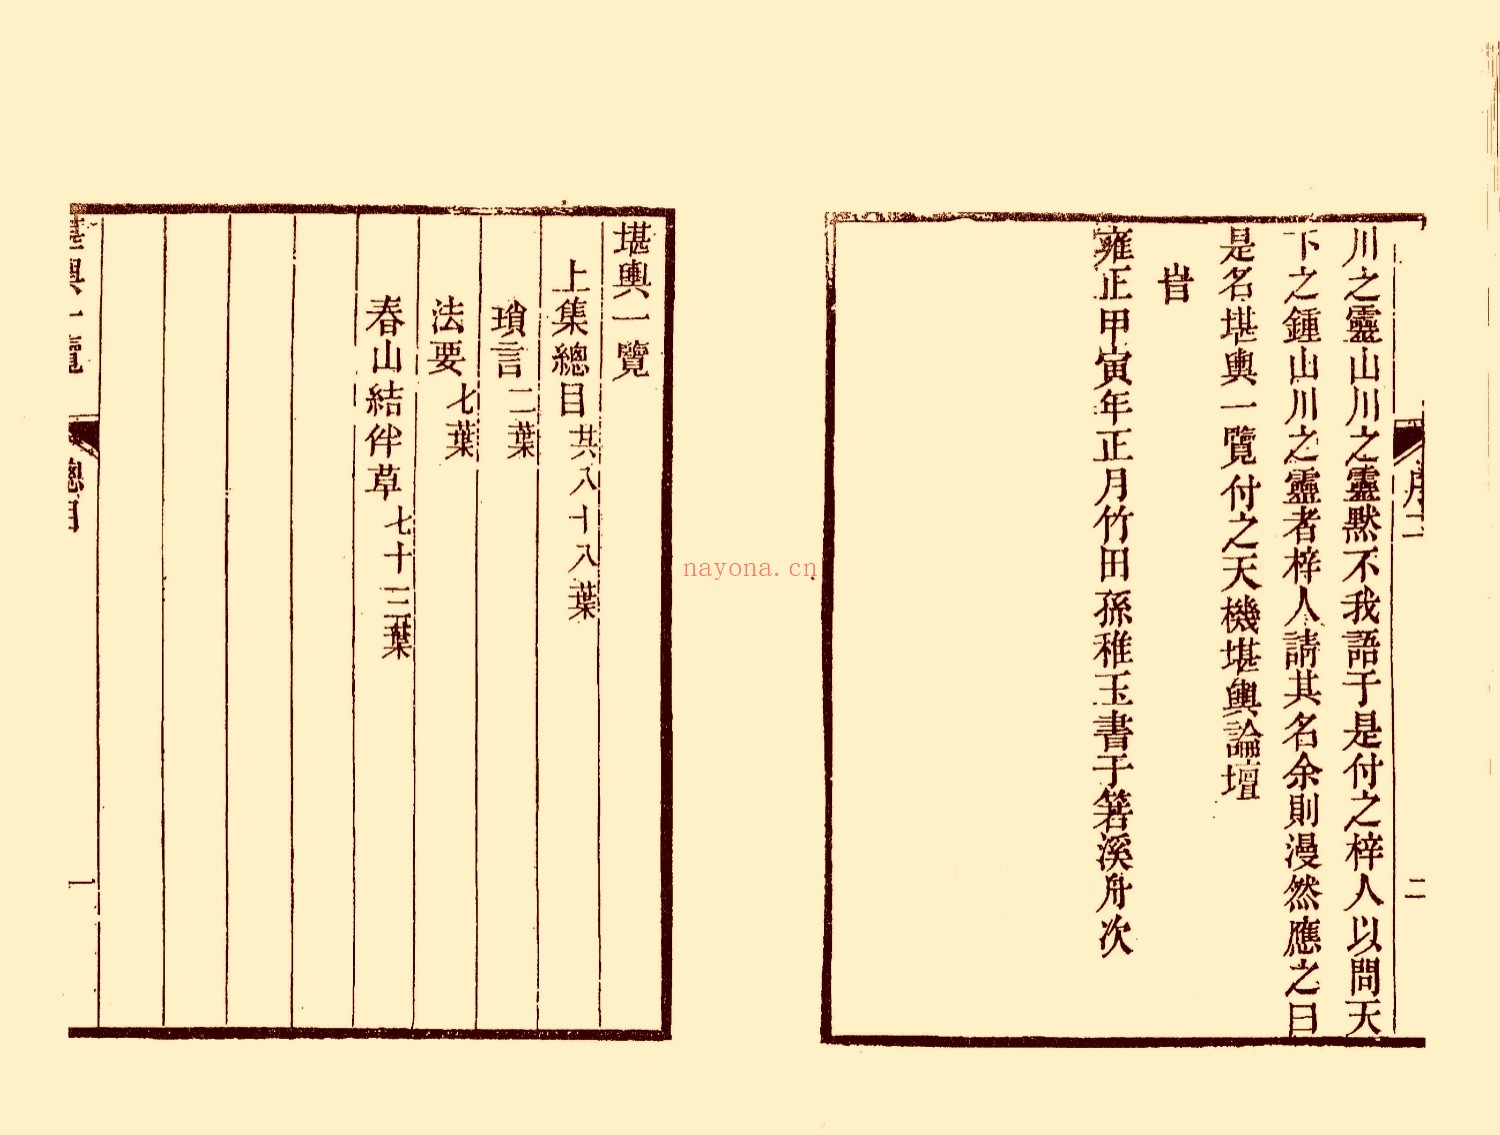 序二
二
川之靈山川之靈默不我語于是付之梓人以問天
下之鍾山川之靈者梓人請其名余則漫然應之曰
是名堪輿一覽付之天機堪輿論壇
旹
雍正甲寅年正月竹田孫稚玉書于箬溪舟次
nayona.cn
堪輿一覽
上集總目共八十八葉
瑣言二葉
法要七葉
春山結伴草七十三葉
堪輿一覽
總目
一